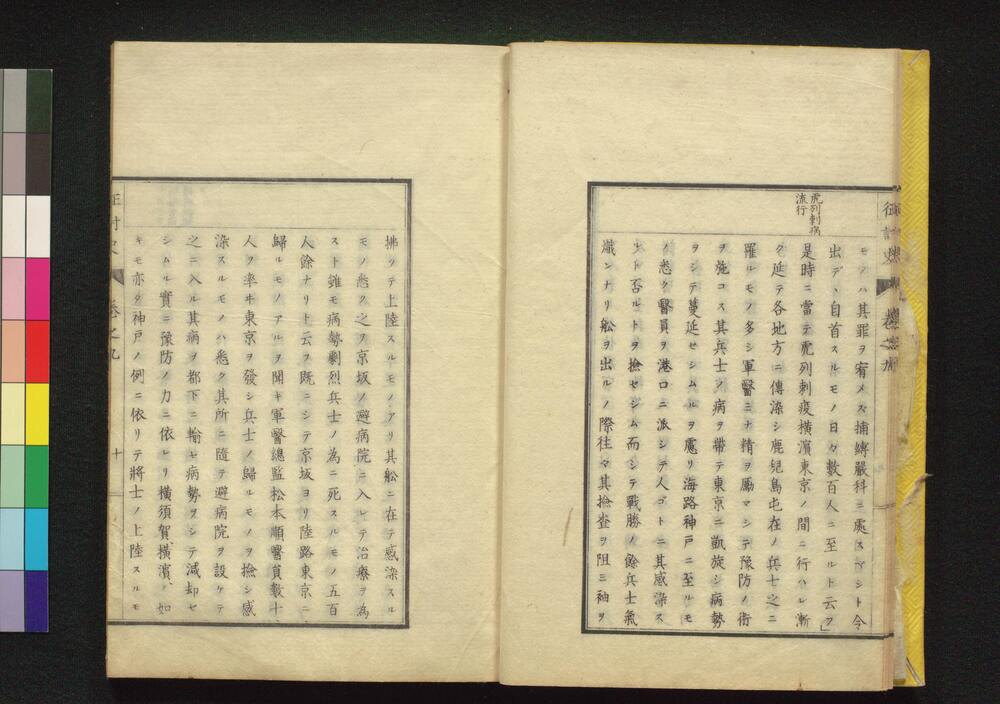 虎列刺病
流行
モノハ其罪ヲ宥メス捕縛嚴科ニ處スベシト今
出デヽ自首スルモノ日々數百人ニ至ルト云フ」
是時ニ當テ虎列刺疫橫濱東京ノ間ニ行ハレ漸
ク延テ各地方ニ傳染シ鹿兒島屯在ノ兵士之ニ
罹ルモノ多シ軍醫ミナ精ヲ勵マシテ豫防ノ術
ヲ施コス其兵士ノ病ヲ帶テ東京ニ凱旋シ病勢
ヲシテ蔓延セシムルヲ慮リ海路神戸ニ至ルモ
ノ悉ク醫員ヲ港口ニ派シテ人ゴトニ其感染ス
ルト否ルトヲ撿セシム而シテ戰勝ノ餘兵士氣
熾ンナリ舩ヲ出ルノ際往々其撿査ヲ阻ミ袖ヲ
拂ツテ上陸スルモノアリ其舩ニ在テ感染スル
モノハ悉ク之ヲ京坂ノ避病院ニ入レテ治療ヲ為
スト雖モ病勢劇烈兵士ノ為ニ死スルモノ五百
人餘ナリト云フ既ニシテ京坂ヨリ陸路東京ニ
歸ルモノアルヲ聞キ軍醫總監松本順醫員數十
人ヲ率ヰ東京ヲ發シ兵士ノ歸ルモノヲ撿シ感
染スルモノハ悉ク其所ニ隨テ避病院ヲ設ケテ
之ニ入ル其病ヲ都下ニ輸セ病勢ヲシテ減却セ
シムル實ニ豫防ノ力ニ依レリ橫須賀、橫濱、ノ如
キモ亦タ神戸ノ例ニ依リテ將士ノ上陸スルモ
征討史
卷之九
十